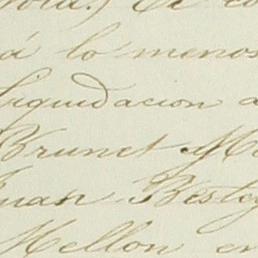 á lo menos
Liquidacion a
Brunet
Juan Bestey
Mellon en